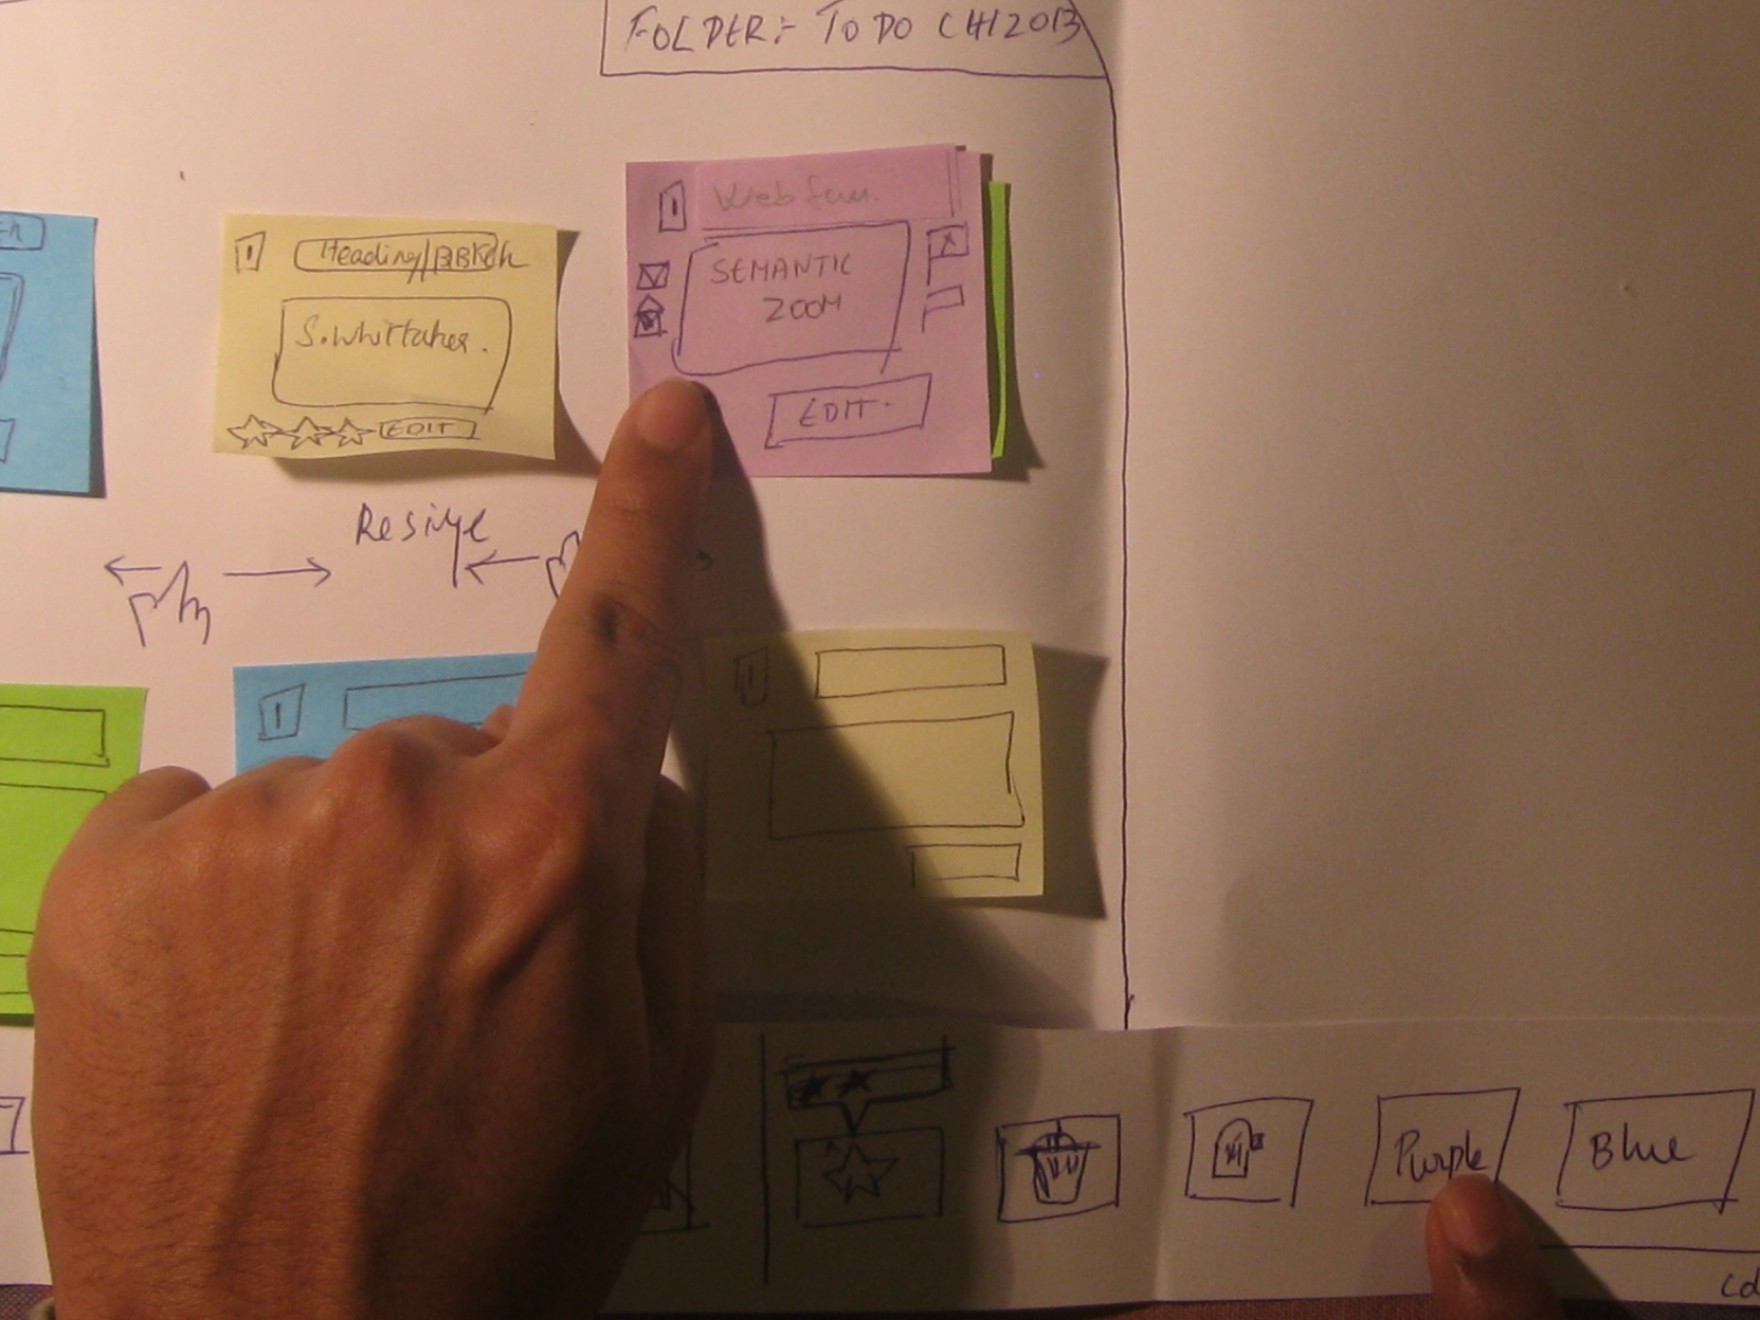 FOLDER:- TO DO CHI2013
Heading/
S. Whittaker.
EDIT
Web
SEMANTIC
ZOOM
EDIT.
Resize
Purple
Blue